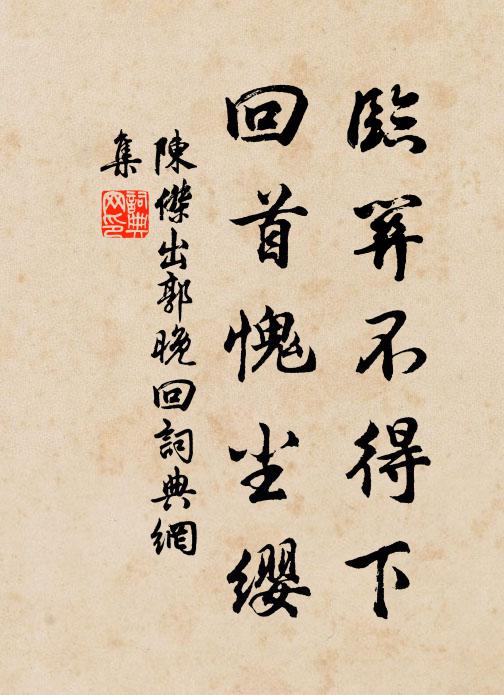 臨不得下
回首愧尘缨
陳傑出郭晚回詞典網
集
詞典
网印